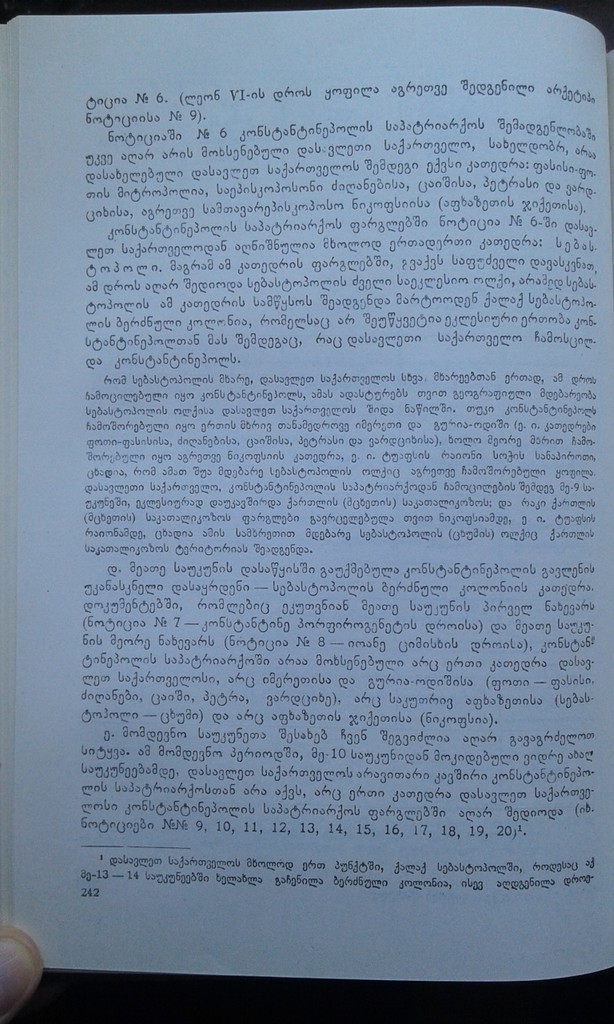 ტიცია № 6. (ლეონ VI-ის დროს ყოფილა აგრეთვე შედგენილი არქეტიპი
ნოტიციისა № 9).
ნოტიციაში № 6 კონსტანტინეპოლის საპატრიარქოს შემადგენლობაში
უკვე აღარ არის მოხსენებული დასავლეთი საქართველო, სახელდობრ, არაა
დასახელებული დასავლეთ საქართველოს შემდეგი ექვსი კათედრა: ფასისი-ფო-
თის მიტროპოლია, საეპისკოპოსონი ძიღანებისა, ცაიშისა, პეტრასი და ვარდ-
ციხისა, აგრეთვე სამთავარეპისკოპოსო ნიკოფსიისა (აფხაზეთის ჯიქეთისა).
კონსტანტინეპოლის საპატრიარქოს ფარგლებში ნოტიცია № 6-ში დასავ-
ლეთ საქართველოდან აღნიშნულია მხოლოდ ერთადერთი კათედრა: სებას-
ტოპოლი. მაგრამ ამ კათედრის ფარგლებში, გვაქვს საფუძველი დავასკვნათ,
ამ დროს აღარ შედიოდა სებასტოპოლის ძველი საეკლესიო ოლქი, არამედ სებას-
ტოპოლის ამ კათედრის სამწყსოს შეადგენდა მარტოოდენ ქალაქ სებასტოპო-
ლის ბერძნული კოლონია, რომელსაც არ შეუწყვეტია ეკლესიური ერთობა კონ-
სტანტინეპოლთან მას შემდეგაც, რაც დასავლეთი საქართველო ჩამოსცილ-
და კონსტანტინეპოლს.
რომ სებასტოპოლის მხარე, დასავლეთ საქართველოს სხვა მხარეებთან ერთად, ამ დროს
ჩამოცილებული იყო კონსტანტინეპოლს, ამას ადასტურებს თვით გეოგრაფიული მდებარეობა
სებასტოპოლის ოლქისა დასავლეთ საქართველოს შიდა ნაწილში. თუკი კონსტანტინეპოლს
ჩამოშორებული იყო ერთის მხრივ თანამედროვე იმერეთი და გურია-ოდიში (ე. ი. კათედრები
ფოთი-ფასისისა, ძიღანებისა, ცაიშისა, პეტრასი და ვარდციხისა), ხოლო მეორე მხრით ჩამო-
შორებული იყო აგრეთვე ნიკოფსიის კათედრა, ე. ი. ტუაფსის რაიონი სოჭის სანაპიროთი,
ცხადია, რომ ამათ შუა მდებარე სებასტოპოლის ოლქიც აგრეთვე ჩამოშორებული ყოფილა.
დასავლეთი საქართველო, კონსტანტინეპოლის საპატრიარქოდან ჩამოცილების შემდეგ მე-9 სა-
უკუნეში, ეკლესიურად დაუკავშირდა ქართლის (მცხეთის) საკათალიკოსოს; და რაკი ქართლის
(მცხეთის) საკათალიკოსოს ფარგლები გავრცელებულა თვით ნიკოფსიამდე, ე ი. ტუაფსის
რაიონამდე, ცხადია ამის სამხრეთით მდებარე სებასტოპოლის (ცხუმის) ოლქიც ქართლის
საკათალიკოსოს ტერიტორიას შეადგენდა.
დ. მეათე საუკუნის დასაწყისში გაუქმებულა კონსტანტინეპოლის გავლენის
უკანასკნელი დასაყრდენი — სებასტოპოლის ბერძნული კოლონიის კათედრა.
დოკუმენტებში, რომლებიც ეკუთვნიან მეათე საუკუნის პირველ ნახევარს
(ნოტიცია № 7 — კონსტანტინე პორფიროგენეტის დროისა) და მეათე საუკუ-
ნის მეორე ნახევარს (ნოტიცია № 8 — იოანე ციმისხის დროისა), კონსტან-
ტინეპოლის საპატრიარქოში არაა მოხსენებული არც ერთი კათედრა დასავ-
ლეთ საქართველოსი, არც იმერეთისა და გურია-ოდიშისა (ფოთი — ფასისი,
ძიღანები, ცაიში, პეტრა, ვარდციხე), არც საკუთრივ აფხაზეთისა (სებას-
ტოპოლი — ცხუმი) და არც აფხაზეთის ჯიქეთისა (ნიკოფსია).
ე. მომდევნო საუკუნეთა შესახებ ჩვენ შეგვიძლია აღარ გავაგრძელოთ
სიტყვა. ამ მომდევნო პერიოდში, მე-10 საუკუნიდან მოკიდებული ვიდრე ახალ
საუკუნეებამდე, დასავლეთ საქართველოს არავითარი კავშირი კონსტანტინეპო-
ლის საპატრიარქოსთან არა აქვს, არც ერთი კათედრა დასავლეთ საქართვე-
ლოსი კონსტანტინეპოლის საპატრიარქოს ფარგლებში აღარ შედიოდა (იხ.
ნოტიციები №№ 9, 10, 11, 12, 13, 14, 15, 16, 17, 18, 19, 20)¹.
¹ დასავლეთ საქართველოს მხოლოდ ერთ პუნქტში, ქალაქ სებასტოპოლში, როდესაც აქ
მე-13 — 14 საუკუნეებში ხელახლა გაჩენილა ბერძნული კოლონია, ისევ აღდგენილა დროე-
242